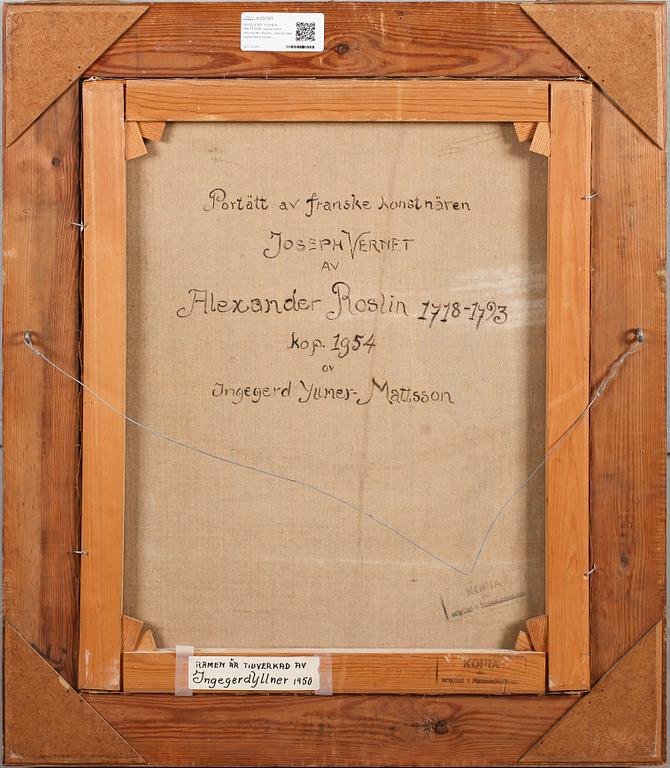 Portätt av franske konstnären
JOSEPH VERNET
AV
Alexander Roslin 1718-1793
kop. 1954
av
Ingegerd Yllner-Mattsson
KOPIA
original i
RAMEN ÄR TILLVERKAD AV
Ingegerd Yllner 1950
KOPIA
original i